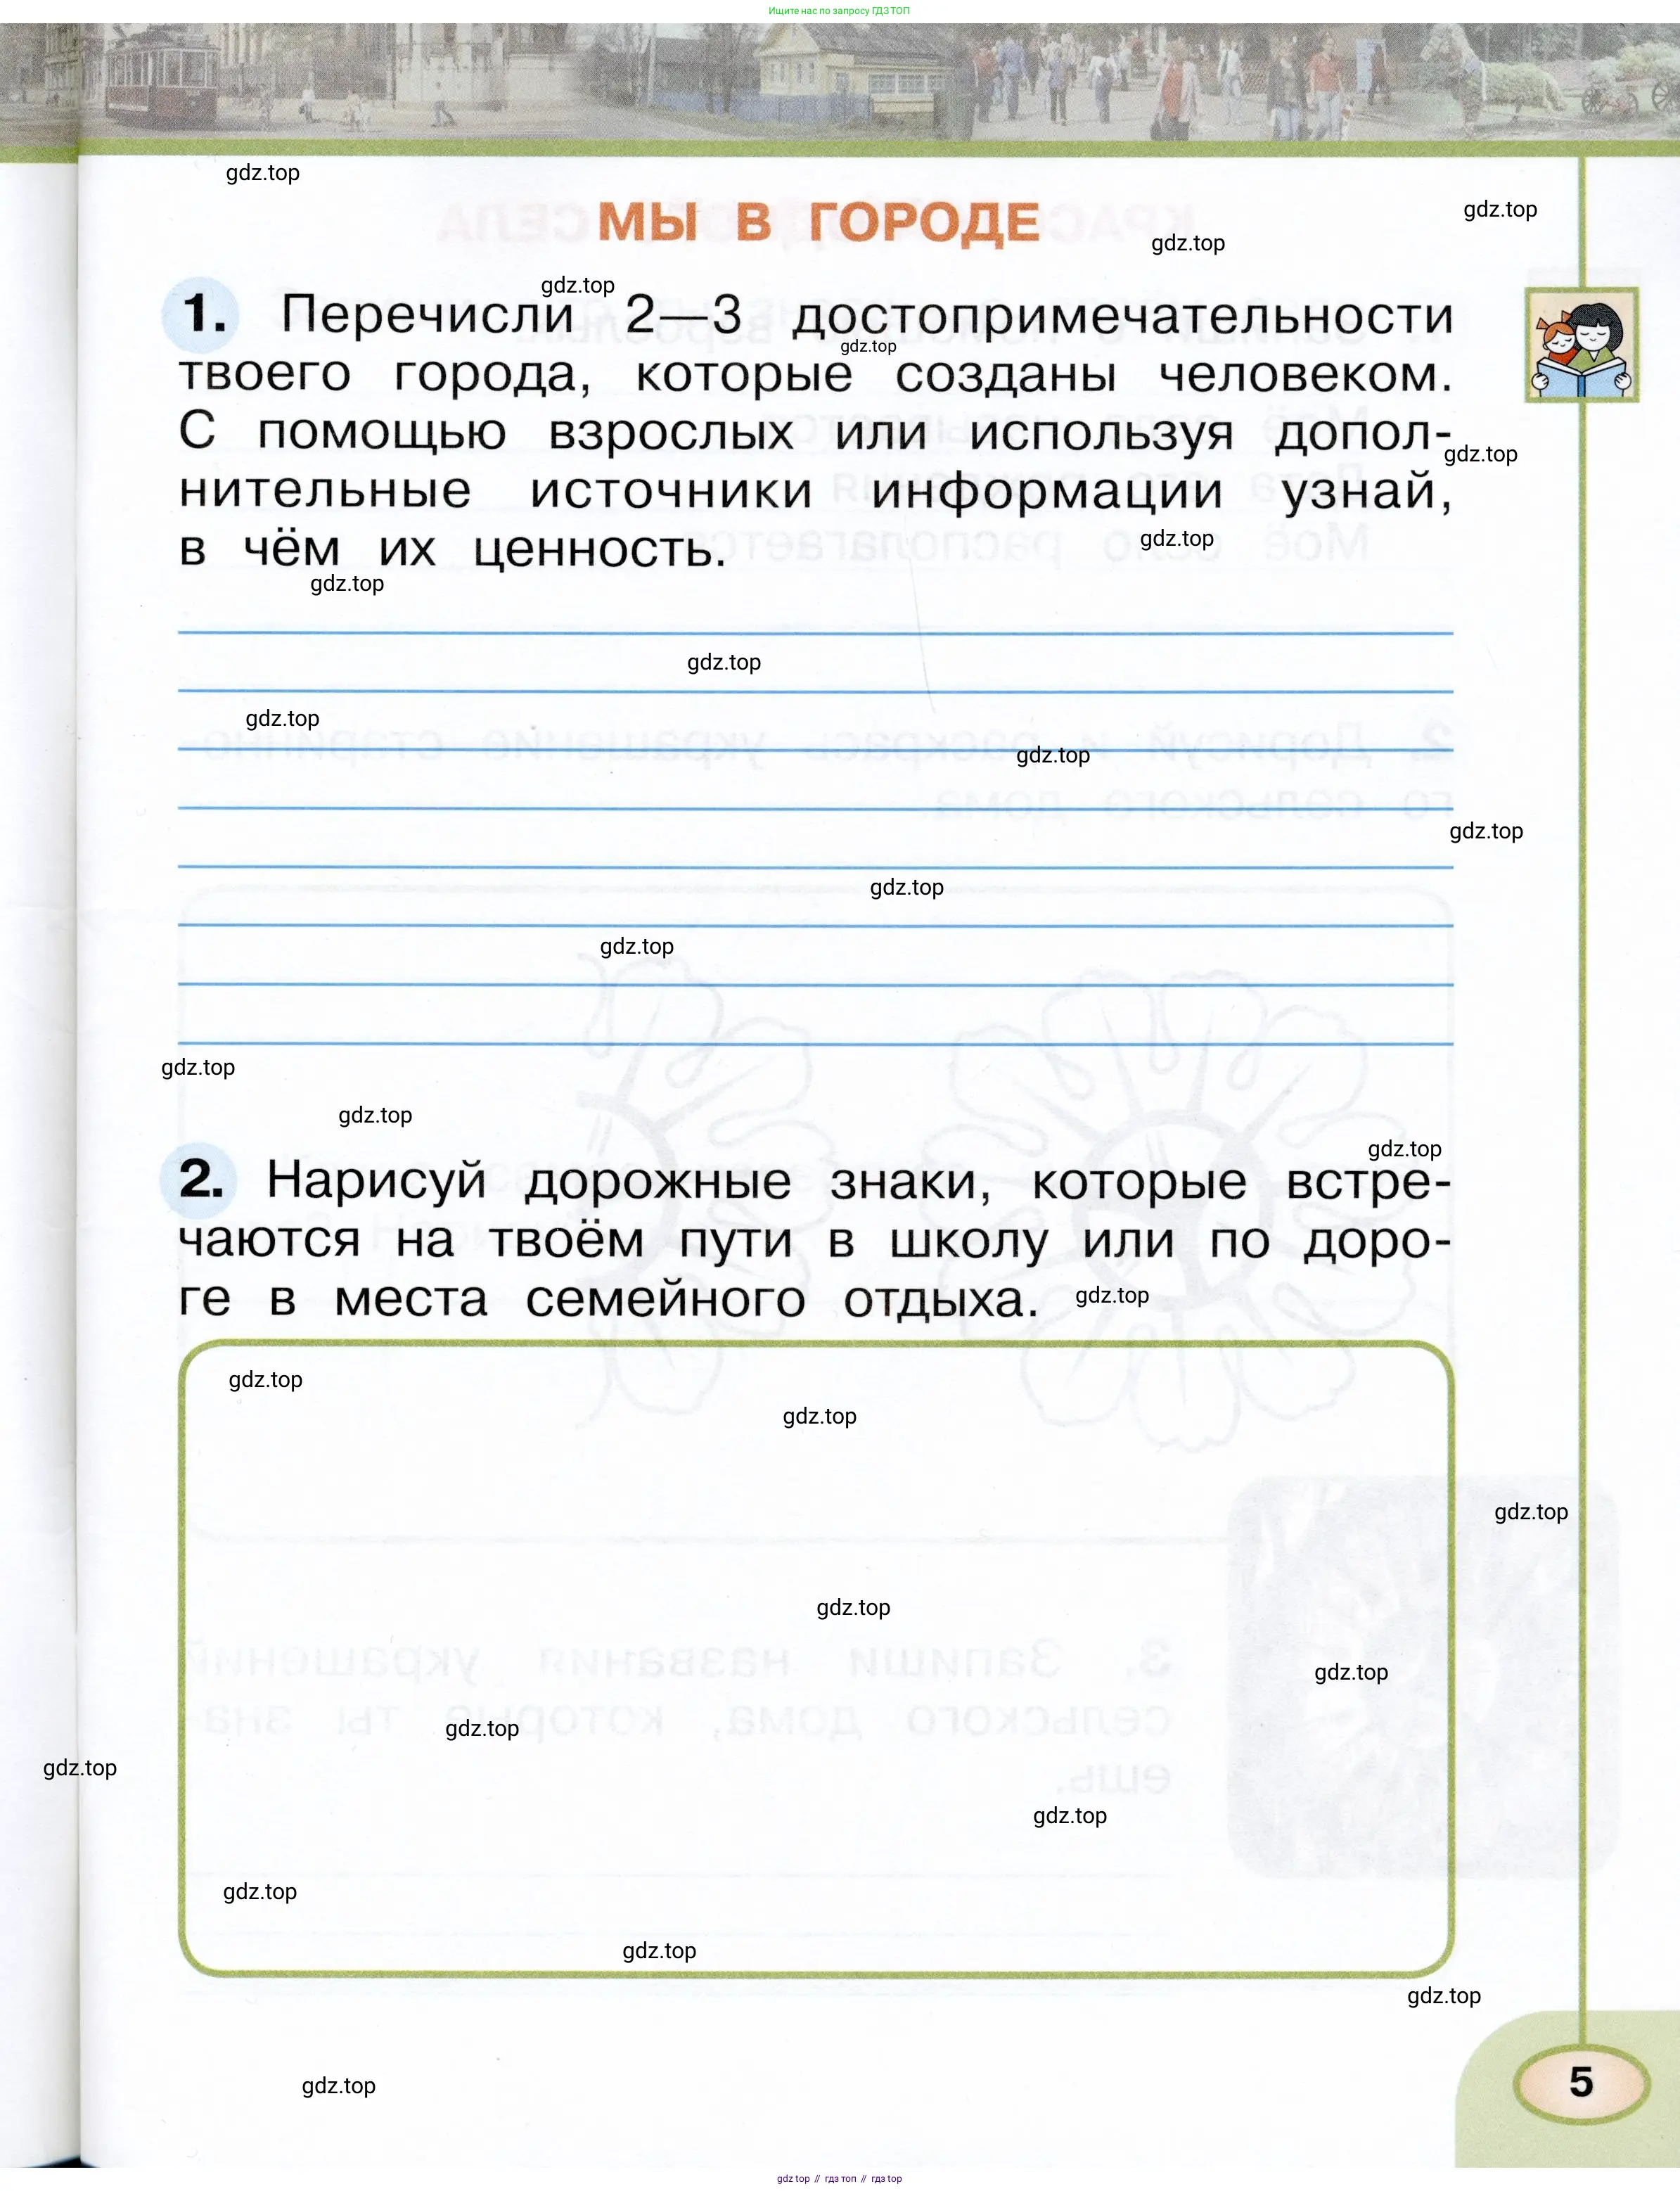 Ищите нас по запросу ГДЗ ТОП
gdz.top
МЫ В ГОРОДЕ
gdz.top
gdz.top
gdz.top
1. Перечисли 2—3 достопримечательности
gdz.top
твоего города, которые созданы человеком.
С помощью взрослых или используя допол-
gdz.top
нительные источники информации узнай,
gdz.top
в чём их ценность.
gdz.top
gdz.top
gdz.top
gdz.top
gdz.top
gdz.top
gdz.top
gdz.top
gdz.top
gdz.top
2. Нарисуй дорожные знаки, которые встре-
чаются на твоём пути в школу или по доро-
ге в места семейного отдыха.
gdz.top
gdz.top
gdz.top
gdz.top
gdz.top
gdz.top
gdz.top
gdz.top
gdz.top
gdz.top
gdz.top
gdz.top
5
gdz.top
gdz top // гдз топ // гдз top